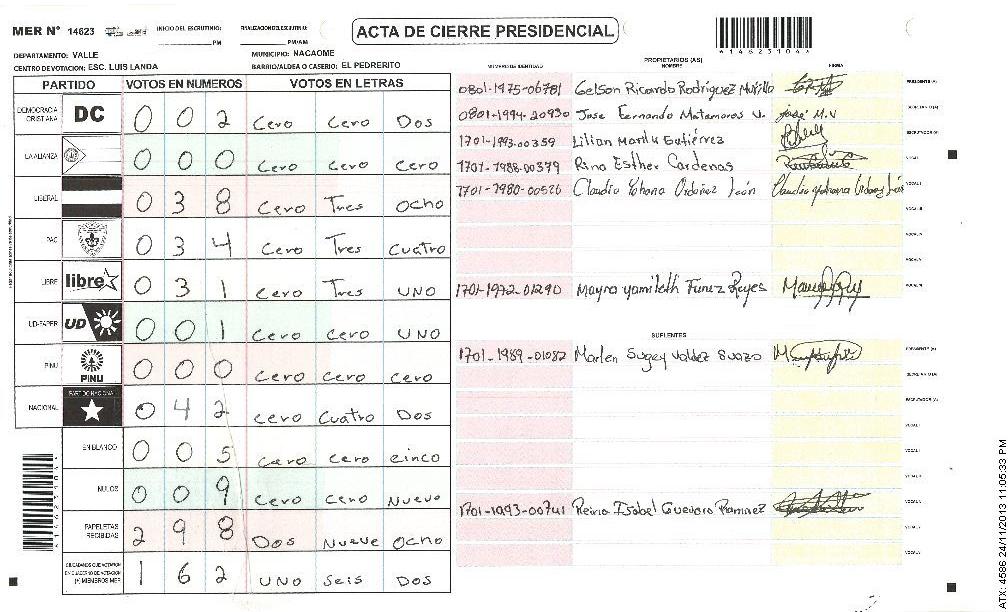 MER Nº 14623 INICIO DEL ESCRUTINIO: PM FINALIZACION DEL ESCRUTINIO: PM/AM
ACTA DE CIERRE PRESIDENCIAL
DEPARTAMENTO: VALLE MUNICIPIO: NACAOME
CENTRO DE VOTACION: ESC. LUIS LANDA BARRIO/ALDEA O CASERIO: EL PEDRERITO
PARTIDO VOTOS EN NUMEROS VOTOS EN LETRAS
DEMOCRACIA CRISTIANA DC 0 0 2 Cero Cero Dos
LA ALIANZA 0 0 0 Cero Cero Cero
LIBERAL 0 3 8 Cero Tres Ocho
PAC 0 3 4 Cero Tres Cuatro
LIBRE libre 0 3 1 Cero Tres UNO
UD-FAPER UD 0 0 1 Cero Cero UNO
PINU PINU 0 0 0 Cero Cero Cero
NACIONAL PARTIDO NACIONAL 0 4 2 Cero Cuatro Dos
EN BLANCO 0 0 5 Cero Cero Cinco
NULOS 0 0 9 Cero Cero Nueve
PAPELETAS RECIBIDAS 2 9 8 Dos Nueve Ocho
CIUDADANOS QUE VOTARON EN CUADERNO DE VOTACION (+) MIEMBROS MER 1 6 2 UNO Seis Dos
PROPIETARIOS (AS)
NUMERO DE IDENTIDAD NOMBRE FIRMA
0801-1975-06781 Gelson Ricardo Rodriguez Murillo PRESIDENTE (A)
0801-1994-20930 Jose Fernando Matamoros V. José M.V SECRETARIO (A)
1701-1993-00359 Lilian Marilu Gutiérrez ESCRUTADOR (A)
1701-1988-00379 Rina Esther Cardenas VOCAL I
1701-1980-00526 Claudia Yohana Ordoñez León VOCAL II
VOCAL III
VOCAL IV
VOCAL V
1701-1972-01290 Mayra Yamileth Funez Reyes
SUPLENTES
1701-1989-01082 Marlen Sugey Valdez Suazo PRESIDENTE (A)
SECRETARIO (A)
ESCRUTADOR (A)
VOCAL I
1701-1993-00741 Reina Isabel Guevara Ramirez
ATX: 4586 24/11/2013 11:05:33 PM